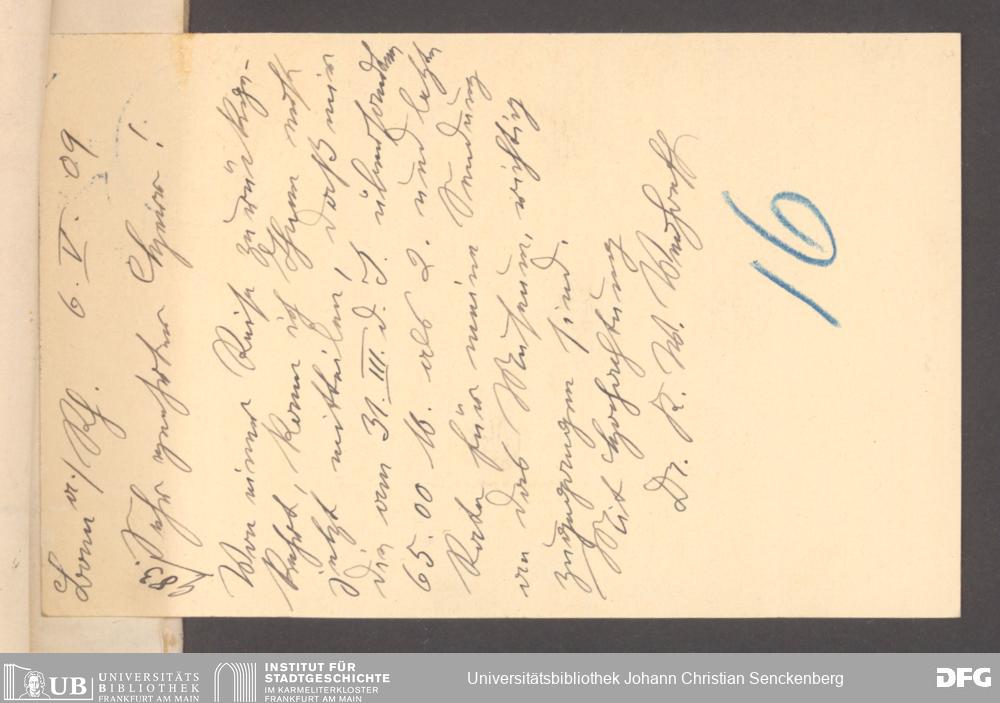 Bonn a./Rh. 6. V. 09
83.
Sehr geehrter Herr!
Von einer Reise zurückge-
kehrt, kann ich Ihnen erst
jetzt mitteilen, daß mir
die am 31. III. d. J. übersandten
65.00 M. als 2. und letzte
Rate für meine Sendung
an das Museum, richtig
zugegangen sind.
Mit Hochachtung
Dr. K. W.
16
UB UNIVERSITÄTS
BIBLIOTHEK
FRANKFURT AM MAIN
INSTITUT FÜR
STADTGESCHICHTE
IM KARMELITERKLOSTER
FRANKFURT AM MAIN
Universitätsbibliothek Johann Christian Senckenberg
DFG